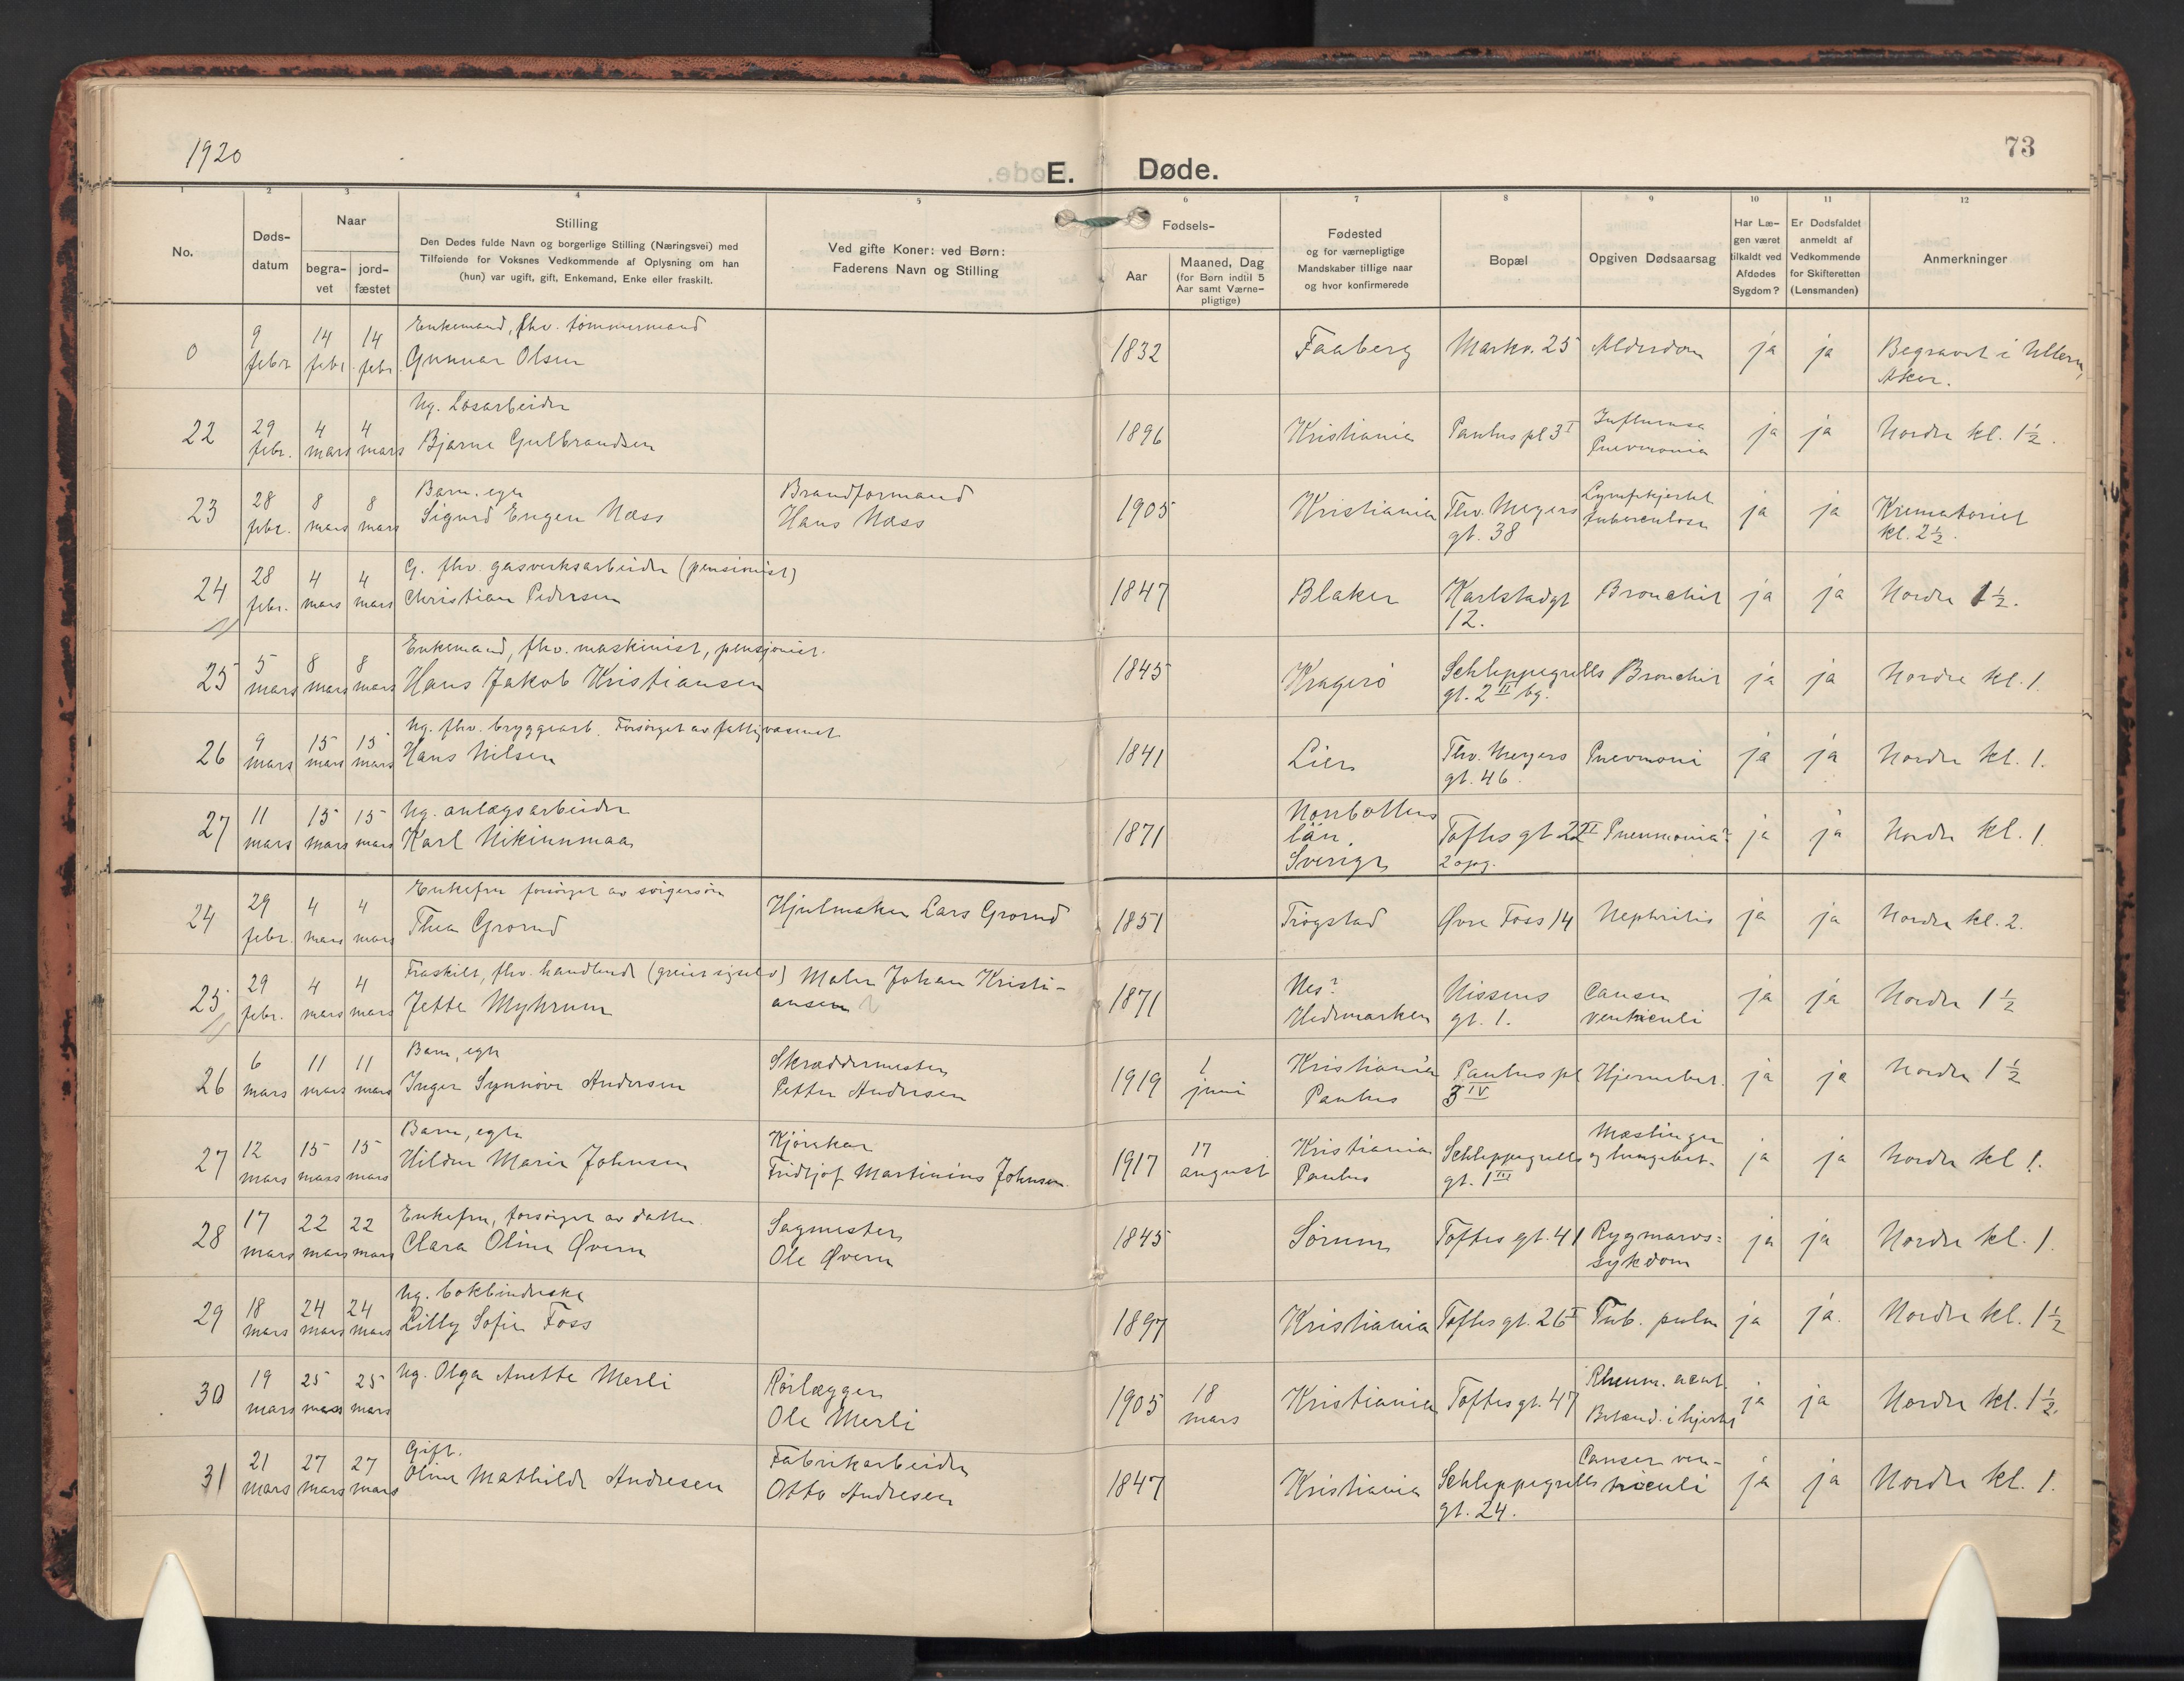 1920
E. Døde.
73
1 2 3 4 5 6 7 8 9 10 11 12
No.
Døds-
datum
Naar
begra-
vet
jord-
fæstet
Stilling
Den Dødes fulde Navn og borgerlige Stilling (Næringsvei) med
Tilføiende for Voksnes Vedkommende af Oplysning om han
(hun) var ugift, gift, Enkemand, Enke eller fraskilt.
Ved gifte Koner: ved Børn:
Faderens Navn og Stilling
Fødsels-
Aar
Maaned, Dag
(for Børn indtil 5
Aar samt Værne-
pligtige)
Fødested
og for værnepligtige
Mandskaber tillige naar
og hvor konfirmerede
Bopæl
Opgiven Dødsaarsag
Har Læ-
gen været
tilkaldt ved
Afdødes
Sygdom?
Er Dødsfaldet
anmeldt af
Vedkommende
for Skifteretten
(Lensmanden)
Anmerkninger
0
9
febr
14
febr.
14
febr.
Enkemand, fhv. tømmermand
Gunnar Olsen
1832
Faaberg
Markv. 25
Alderdom
ja
ja
Begravet i Ullern,
Aker.
22
29
febr.
4
mars
4
mars
Ug. Løsarbeider
Bjarne Gulbrandsen
1896
Kristiania
Paulus pl 3 I
Influensa
Pnevmonia
ja
ja
Nordre kl. 1½.
23
28
febr.
8
mars
8
mars
Barn, egte
Sigurd Eugen Næss
Brandformand
Hans Næss
1905
Kristiania
Thv. Meyers
gt. 38
Lymfekjertel
tuberculose
ja
ja
Krematoriet
kl. 2½.
24
28
febr.
4
mars
4
mars
G. fhv. gasverksarbeider (pensionist)
Christian Pedersen
1847
Blaker
Karlstadgt
12.
Bronchit
ja
ja
Nordre 1½.
25
5
mars
8
mars
8
mars
Enkemand, fhv. maskinist, pensjonist.
Hans Jakob Kristiansen
1845
Kragerö
Schleppegrells
gt. 2 II bg.
Bronchit
ja
ja
Nordre kl. 1.
26
9
mars
15
mars
15
mars
Ug. fhv. bryggearb. Forsörget av fattigvæsenet
Hans Nilsen
1841
Lier
Thv. Meyers
gt. 46.
Pnevmoni
ja
ja
Nordre kl. 1.
27
11
mars
15
mars
15
mars
Ug. anlægsarbeider
Karl Nikinnmaa
1871
Norrbottens
län,
Sverige
Toftes gt 22 II
2 opg.
Pneumonia?
ja
ja
Nordre kl. 1.
24
29
febr.
4
mars
4
mars
Enkefru forsörget av svigersön
Thea Grorud
Hjulmaker Lars Grorud
1851
Trögstad
Øvre Foss 14
Nephritis
ja
ja
Nordre kl. 2.
25
29
febr.
4
mars
4
mars
Fraskilt, fhv. handlende (greier sig selv)
Jette Myhrum
Maler Johan Kristi-
ansen
1871
Nes?
Hedemarken
Nissens
gt. 1.
Cancer
ventriculi
ja
ja
Nordre 1½
26
6
mars
11
mars
11
mars
Barn, egte
Inger Synnöve Andersen
Skræddermester
Petter Andersen
1919
1
juni
Kristiania
Paulus
Paulus pl
3 IV
Hjernebet.
ja
ja
Nordre 1½
27
12
mars
15
mars
15
mars
Barn, egte
Hildur Marie Johnsen
Kjörekar
Fridtjof Martinius Johnsen.
1917
17
august
Kristiania
Paulus
Schleppegrells
gt. 1 III
Mæslinger
og lungebet.
ja
ja
Nordre kl 1.
28
17
mars
22
mars
22
mars
Enkefru, forsörget av datter.
Clara Oline Øvern
Sagmester
Ole Øvern
1845
Sörum
Toftes gt. 41
Rygmarvs=
sykdom
ja
ja
Nordre kl. 1.
29
18
mars
24
mars
24
mars
Ug. bokbinderske
Lilly Sofie Foss
1897
Kristiania
Toftes gt. 26 I
Tub. pulm
ja
ja.
Nordre kl. 1½
30
19
mars
25
mars
25
mars
Ug. Olga Anette Merli
Rörlægger
Ole Merli
1905
18
mars
Kristiania
Toftes gt. 47
Rheum. acut.
Betænd. i hjertet
ja
ja
Nordre kl. 1½.
31
21
mars
27
mars
27
mars
Gift.
Oline Mathilde Andresen
Fabrikarbeider
Otto Andresen
1847
Kristiania
Schleppegrells
gt. 24.
Cancer ven-
triculi
ja
ja
Nordre kl. 1.